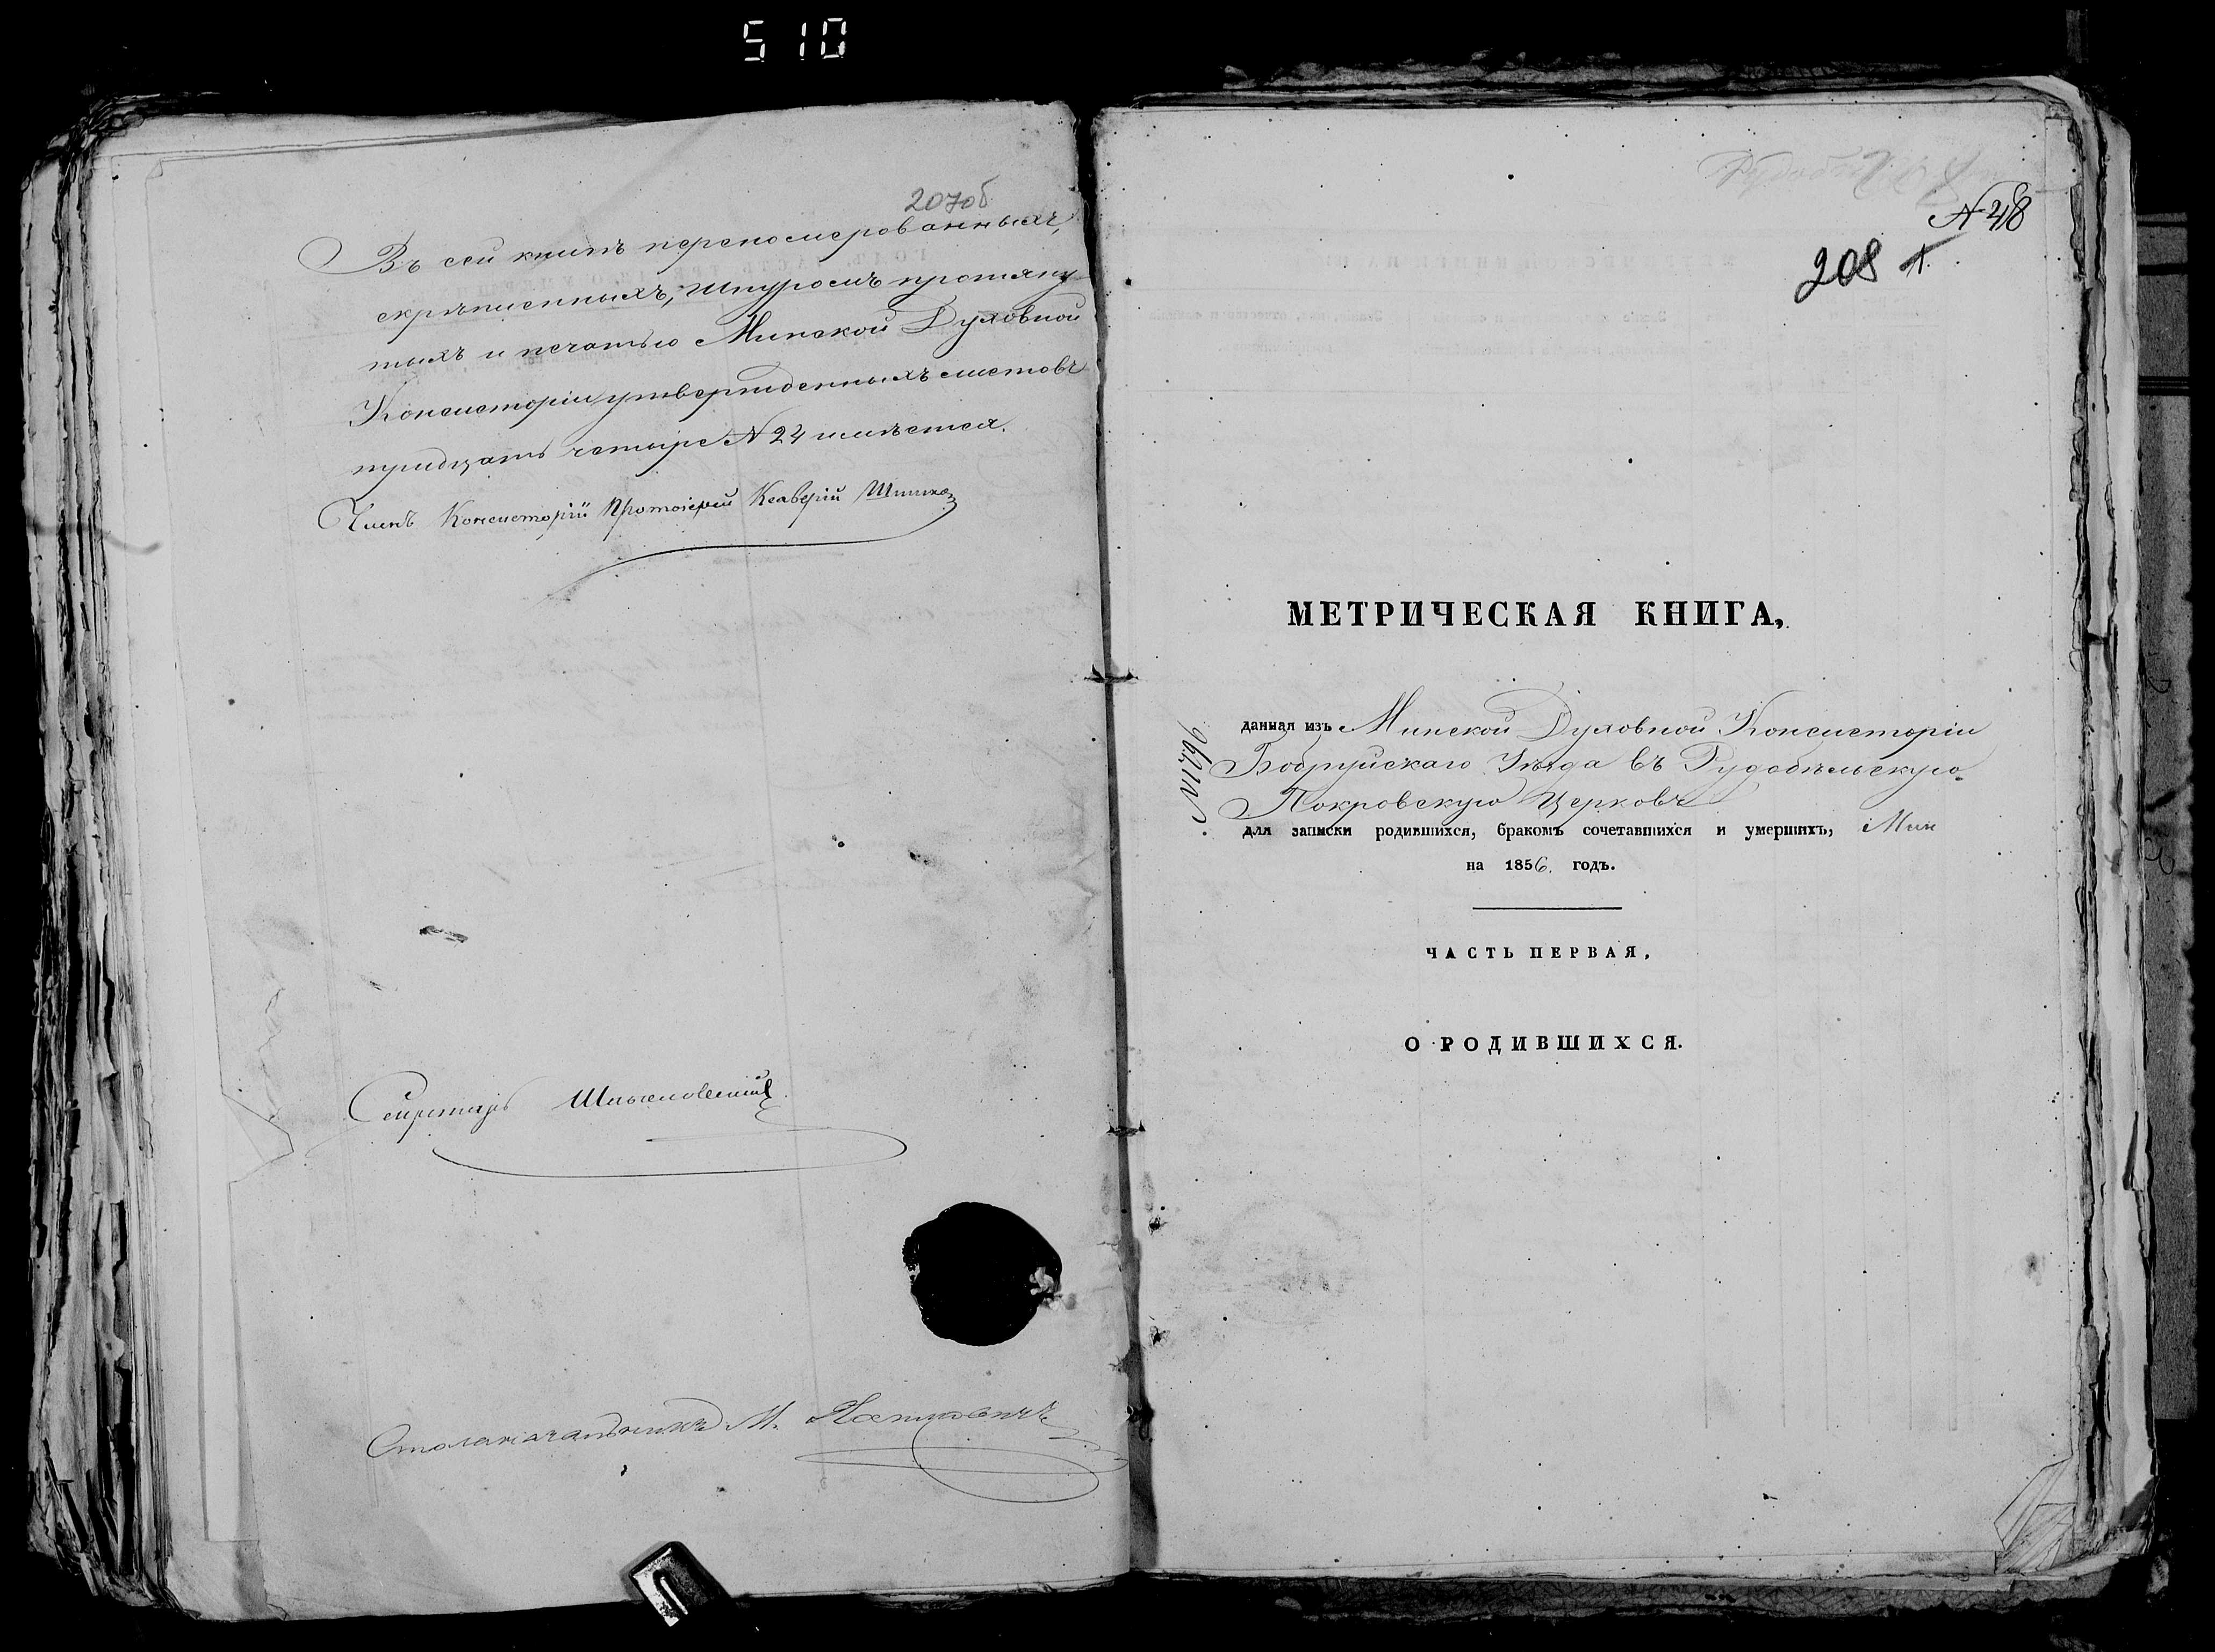 510
207об
Въ сей книгѣ переномерованныхъ,
скрѣпленныхъ, шнуромъ протяну-
тыхъ и печатью Минской Духовной
Консисторіи утвержденныхъ листовъ
тридцать четыре N 24 имѣется.
Членъ Консисторіи Протоіерей Ксаверій
Секретарь
Столоначальникъ М.
N 48
208 1.
МЕТРИЧЕСКАЯ КНИГА,
N 1796
данная изъ Минской Духовной Консисторіи
Бобруйскаго Уѣзда въ Рудобѣльскую
Покровскую Церковь
для записки родившихся, бракомъ сочетавшихся и умершихъ, Мин
на 1856. годъ.
ЧАСТЬ ПЕРВАЯ,
О РОДИВШИХСЯ.